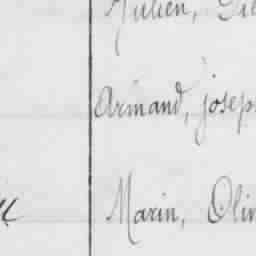 Julien,
Armand, josep
Marin, Olin